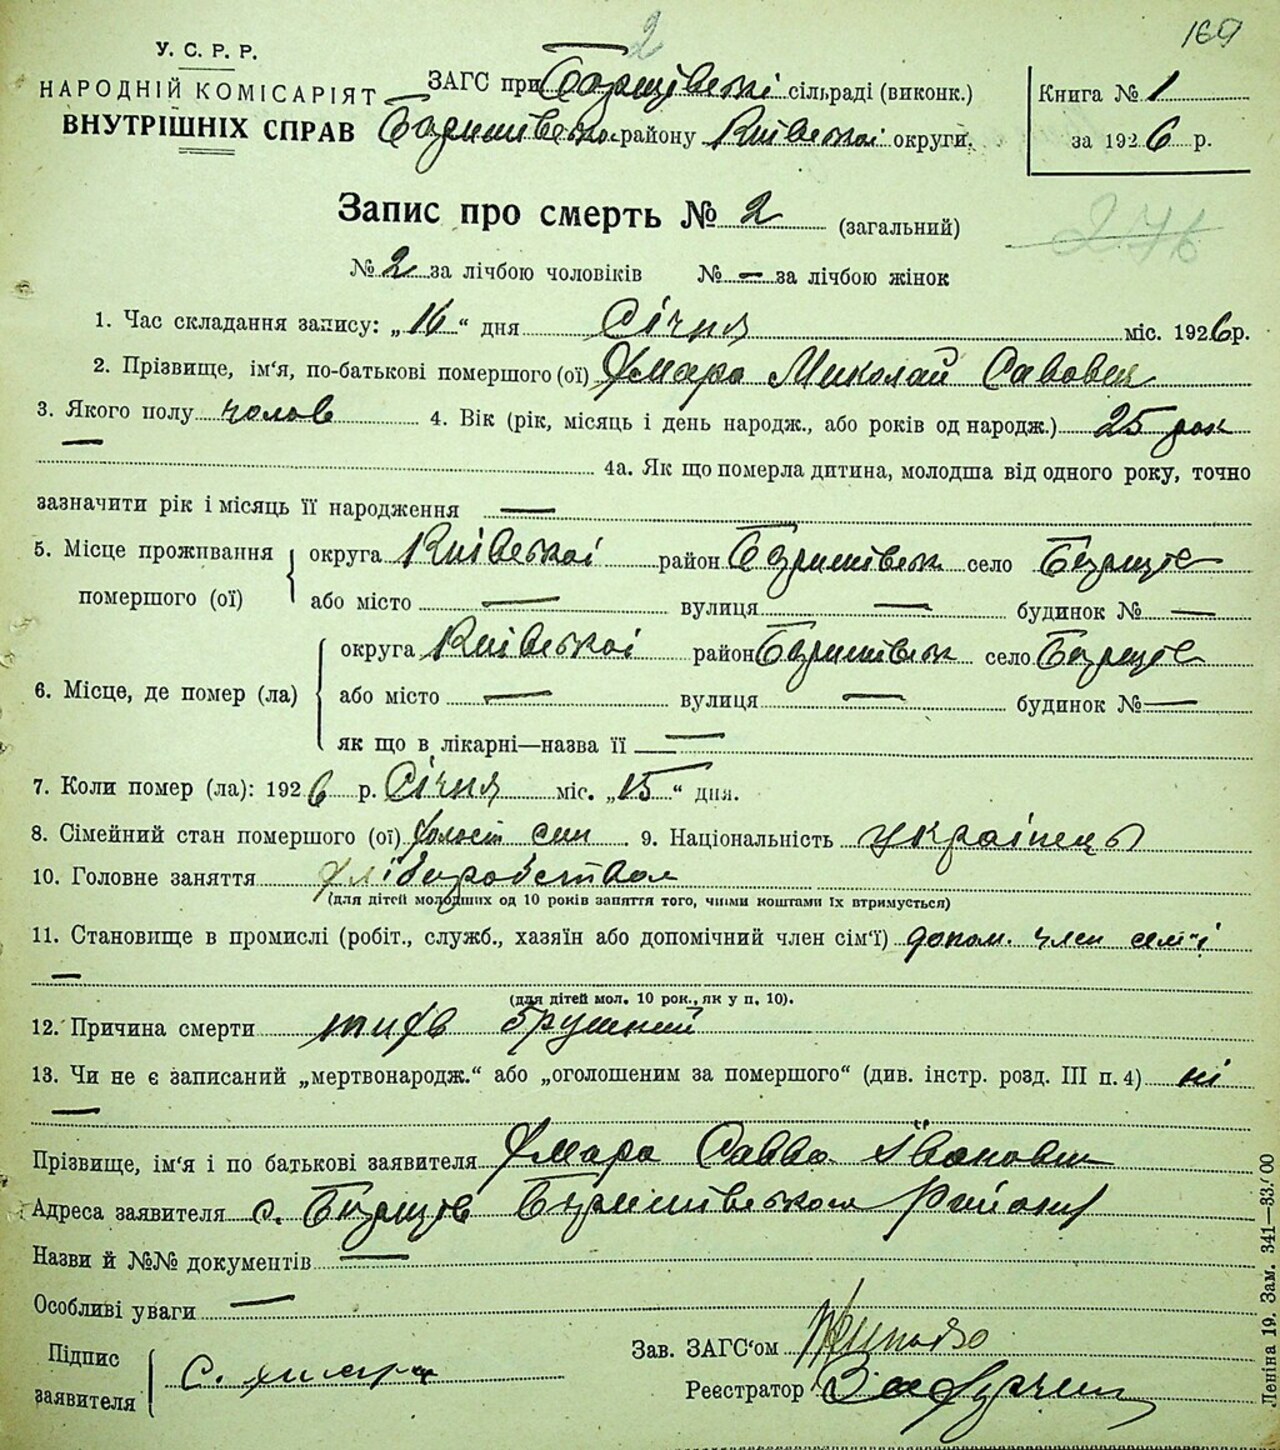 169
2
У. С. Р. Р.
НАРОДНІЙ КОМІСАРІЯТ
ВНУТРІШНІХ СПРАВ
ЗАГС при сільраді (виконк.)
району Київської округи.
Книга № 1
за 1926 р.
276
Запис про смерть № 2 (загальний)
№ 2 за лічбою чоловіків № — за лічбою жінок
1. Час складання запису: „16“ дня Січня міс. 1926 р.
2. Прізвище, ім‘я, по-батькові помершого (ої) Хмара Миколай Савович
3. Якого полу чолов 4. Вік (рік, місяць і день народж., або років од народж.) 25 рок
— 4а. Як що померла дитина, молодша від одного року, точно
зазначити рік і місяць її народження —
5. Місце проживання помершого (ої) округа Київської район село
або місто — вулиця — будинок № —
6. Місце, де помер (ла) округа Київської район село
або місто — вулиця — будинок № —
як що в лікарні—назва її —
7. Коли помер (ла): 1926 р. Січня міс. „15“ дня.
8. Сімейний стан помершого (ої) холост син . 9. Національність українець
10. Головне заняття хліборобством
(для дітей молодших од 10 років заняття того, чиїми коштами їх втримується)
11. Становище в промислі (робіт., служб., хазяїн або допомічний член сім‘ї) допом. член сем'ї
—
(для дітей мол. 10 рок., як у п. 10).
12. Причина смерти тиф брушний
13. Чи не є записаний „мертвонародж.“ або „оголошеним за помершого“ (див. інстр. розд. III п. 4) ні
—
Прізвище, ім‘я і по батькові заявителя Хмара Савва Іванович
Адреса заявителя с. району
Назви й №№ документів —
Особливі уваги —
Підпис заявителя С. Хмара
Зав. ЗАГС‘ом
Реєстратор
Леніна 19. Зам. 341—83.